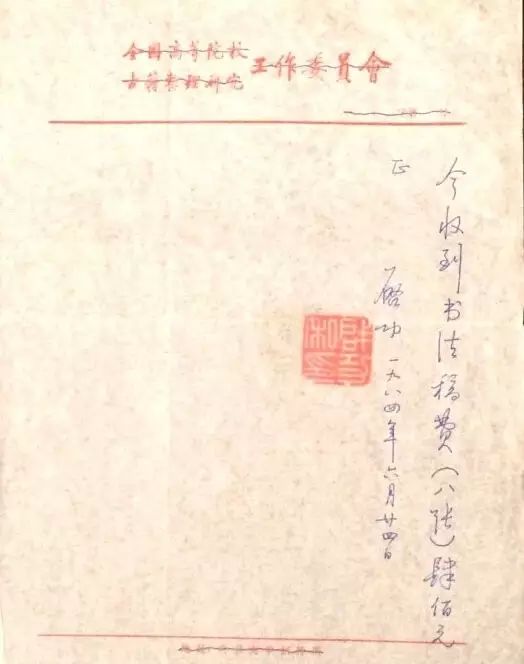 全国高等院校
古籍整理研究
工作委員會
今收到书法稿费(八张)肆佰元
正
启功 一九八四年六月廿四日